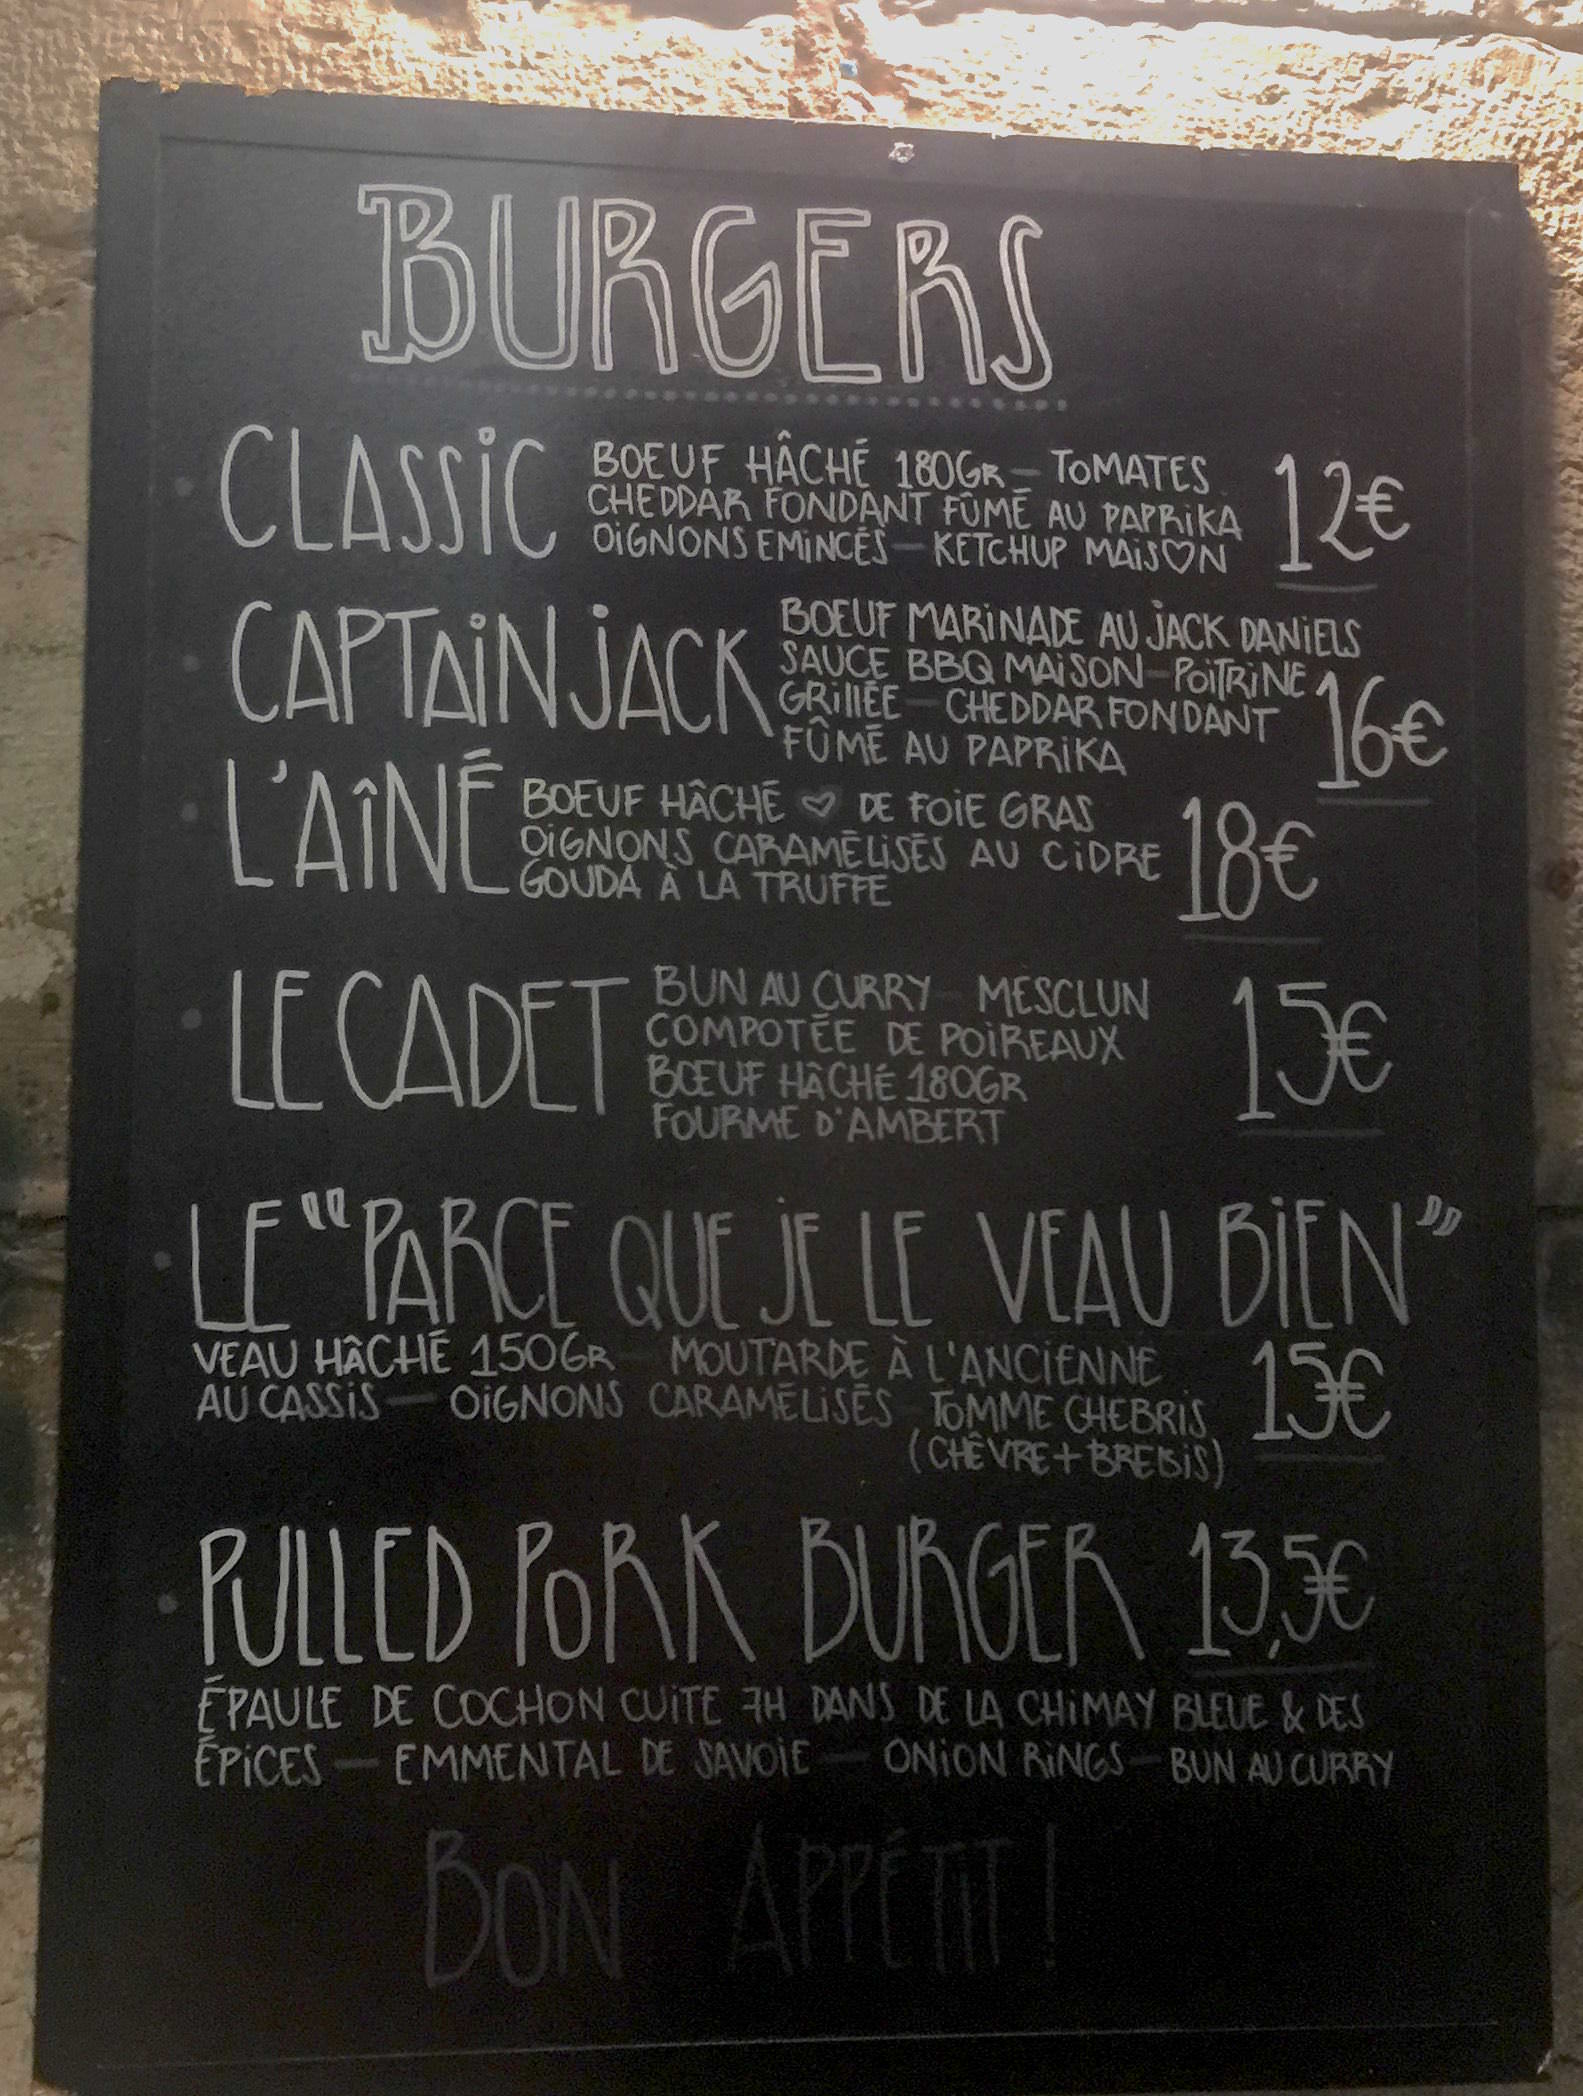 BURGERS
CLASSIC
BOEUF HÂCHÉ 180GR — TOMATES
CHEDDAR FONDANT FÛMÉ AU PAPRIKA
OIGNONS EMINCÉS — KETCHUP MAIS♡N
12€
CAPTAIN JACK
BOEUF MARINADE AU JACK DANIELS
SAUCE BBQ MAISON — POITRINE
GRILLÉE — CHEDDAR FONDANT
FÛMÉ AU PAPRIKA
16€
L'AÎNÉ
BOEUF HÂCHÉ ♡ DE FOIE GRAS
OIGNONS CARAMÉLISÉS AU CIDRE
GOUDA À LA TRUFFE
18€
LE CADET
BUN AU CURRY — MESCLUN
COMPOTÉE DE POIREAUX
BŒUF HÂCHÉ 180GR
FOURME D'AMBERT
15€
LE "PARCE QUE JE LE VEAU BIEN"
VEAU HÂCHÉ 150GR — MOUTARDE À L'ANCIENNE
AU CASSIS — OIGNONS CARAMÉLISÉS — TOMME CHEBRIS
(CHÊVRE + BREBIS)
15€
PULLED PORK BURGER 13,5€
ÉPAULE DE COCHON CUITE 7H DANS DE LA CHIMAY BLEUE & DES
ÉPICES — EMMENTAL DE SAVOIE — ONION RINGS — BUN AU CURRY
BON APPÉTIT !